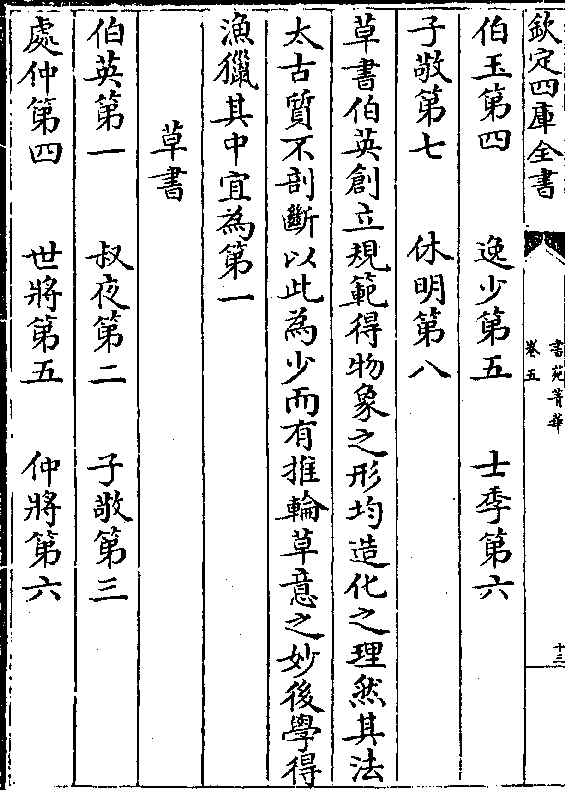 欽定四庫全書
書苑菁華
卷五
十三
伯玉第四　逸少第五　士季第六
子敬第七　休明第八
草書伯英創立規範得物象之形均造化之理然其法
太古質不剖斷以此為少而有推輪草意之妙後學得
漁獵其中宜為第一
草書
伯英第一　叔夜第二　子敬第三
處仲第四　世將第五　仲將第六